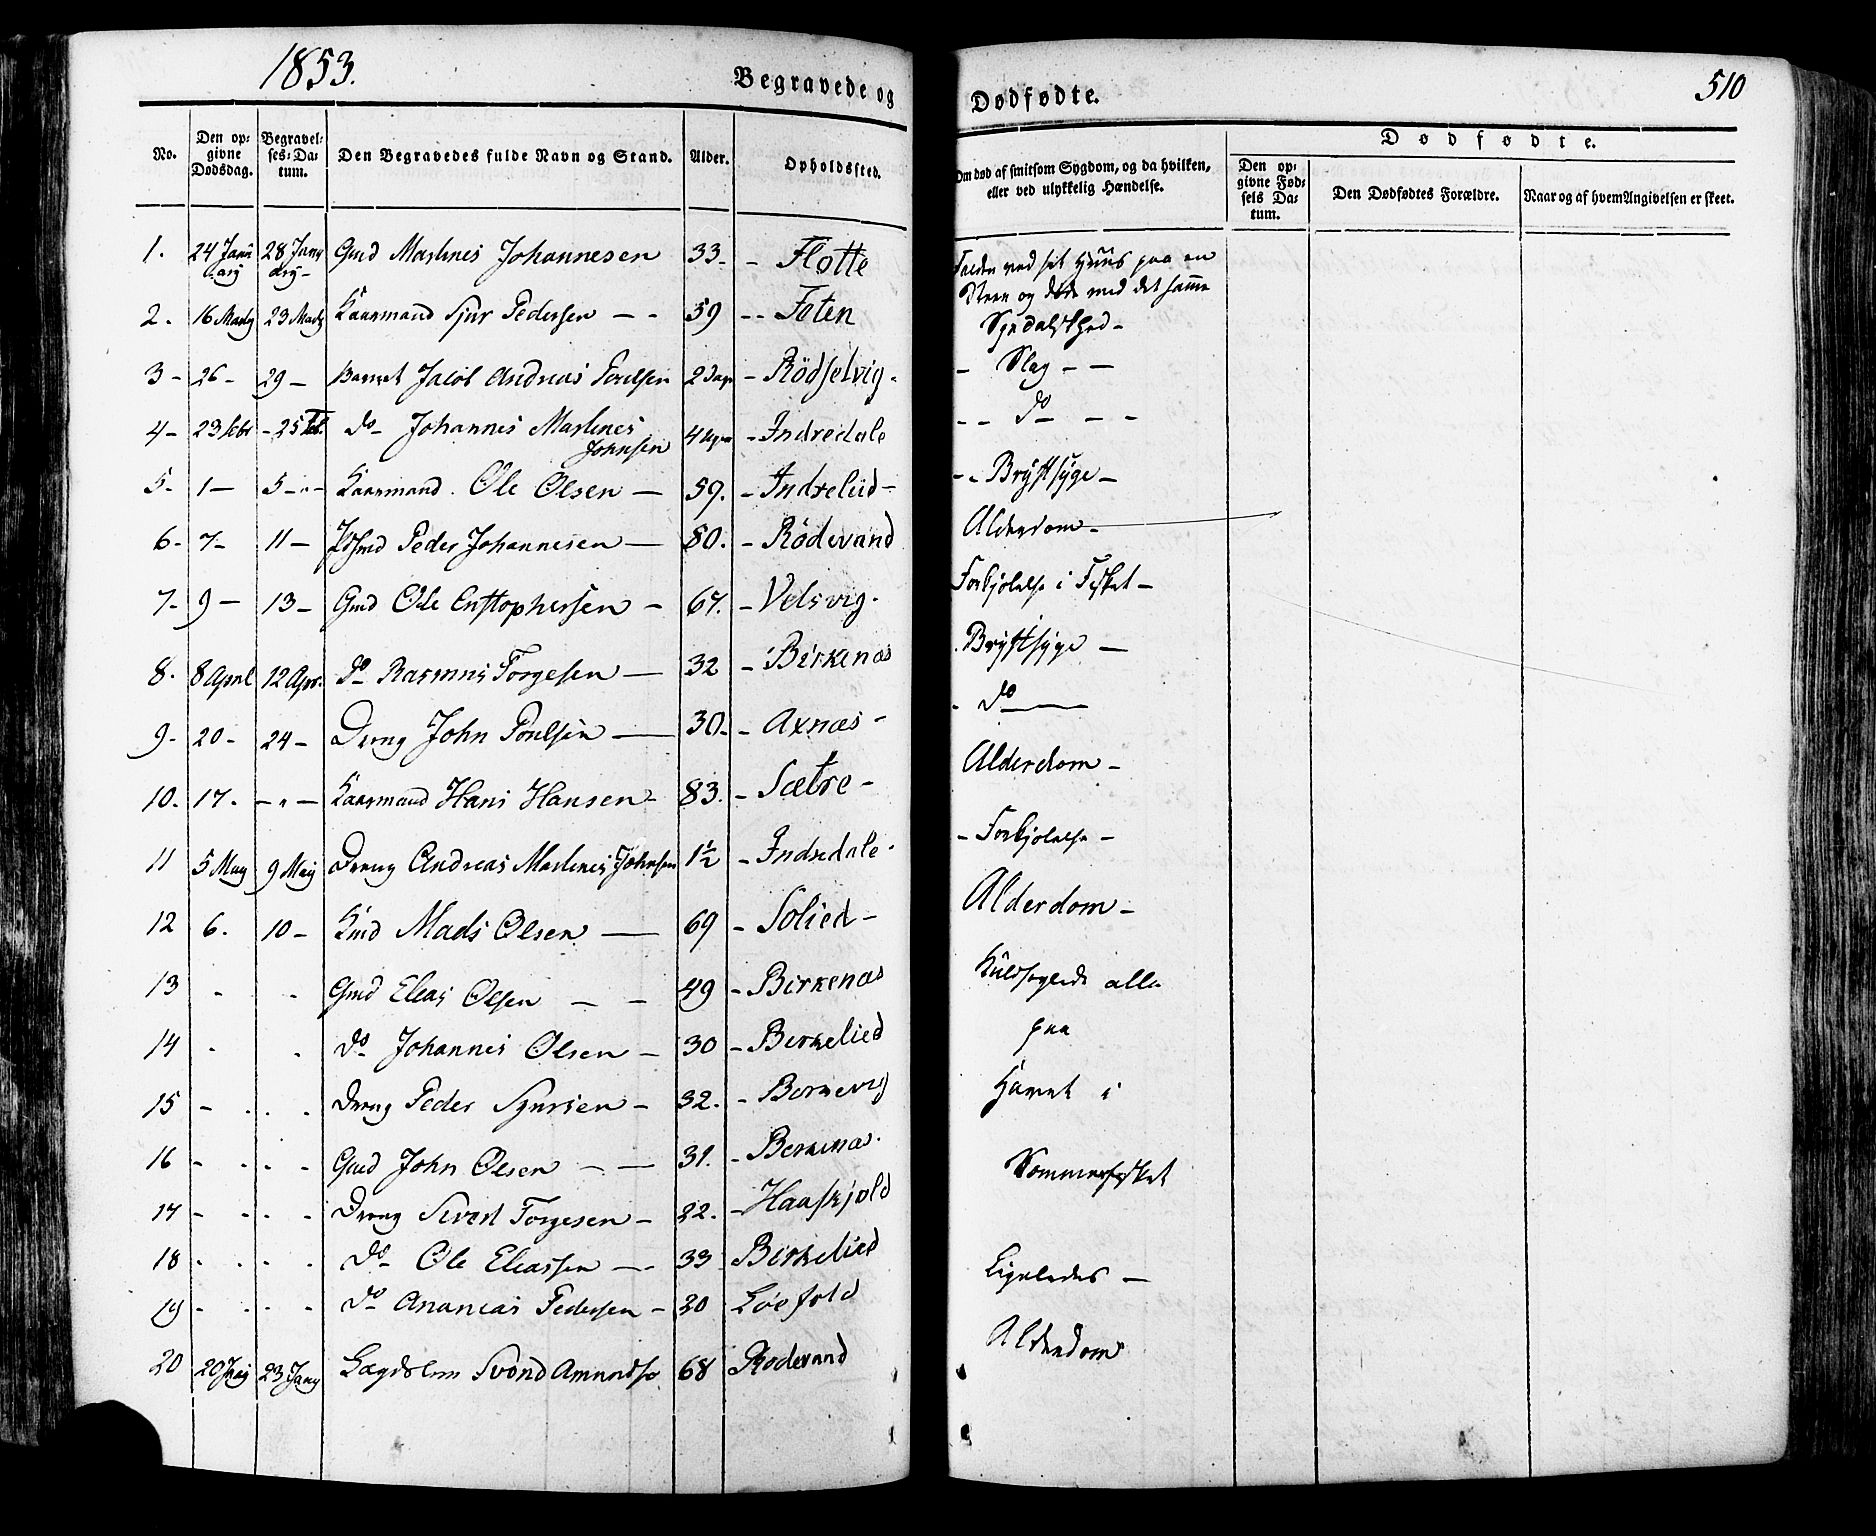 1853.
Begravede og
Dødfødte.
510
No.
Den opgivne Dødsdag.
Begravelses-Datum.
Den Begravedes fulde Navn og Stand.
Alder.
Opholdssted.
Om død af smitsom Sygdom, og da hvilken, eller ved ulykkelig Hændelse.
Dødfødte.
Den opgivne Fødsels Datum.
Den Dødfødtes Forældre.
Naar og af hvem Angivelsen er skeet.
1. 24 Januarj 28 Januarj Gmd Martines Johannesen 33 - Flotte
Falden ved sit Huus paa en
Steen og døde med det samme
2. 16 23 Kaarmand Sjur Pedersen - - 59 -- Foten
3 - 26 - 29 - Barnet Jacob Andreas Poulsen 2 Dage - Rödselvig -
- Slag - -
4 - 23 Febr - 25 Feb. do Johannis Martines Johnsen 4 - Indredale
- - do - -
5 - 1 - 5 - Kaarmand Ole Olsen - 59. - Indrelied -
- - Brystsyge -
6 - 7 - 11 - Peder Johannesen - 80. - Rödevand
Alderdom -
7 - 9 - 13 - Gmd Ole Cristophersen - 67. - Velsvig -
Forkjølelse i Fisket -
8. 8 April 12 Apr. do Rasmus Torgesen - 32 - Birkenæs
Brystsyge -
9 - 20 - 24 - Dreng John Poulsen - 30 - - Axnæs -
- do
10. 17. - " - Kaarmand Hans Hansen - 83. - Sætre -
Alderdom -
11 5 May 9 Maj Dreng Andreas Martines Johnsen 1½ - Indredale -
- Forkjølelse -
12 6. 10 - Kmd Mads Olsen - 69 - Solied -
Alderdom -
13 Gmd Elias Olsen - - 49 - Birkenæs
Kuldseglede alle
14 do Johannes Olsen - 30 - Berkelied
paa
15 - Dreng Peder Sjursen - 32. - Borkevig
Havet i
16 - Gmd John Olsen - - 31. - Berkenæs.
Sommerfisket
17 - Dreng Sivert Torgesen - 22. - Haaskjold
18 do Ole Eleassen - 33 Birkelied
Ligeledes -
19 - do Ananias Pedersen - 20 Löefold
20 20 23 Lægdslem Svend Amundsø 68 Rödevand
Alderdom